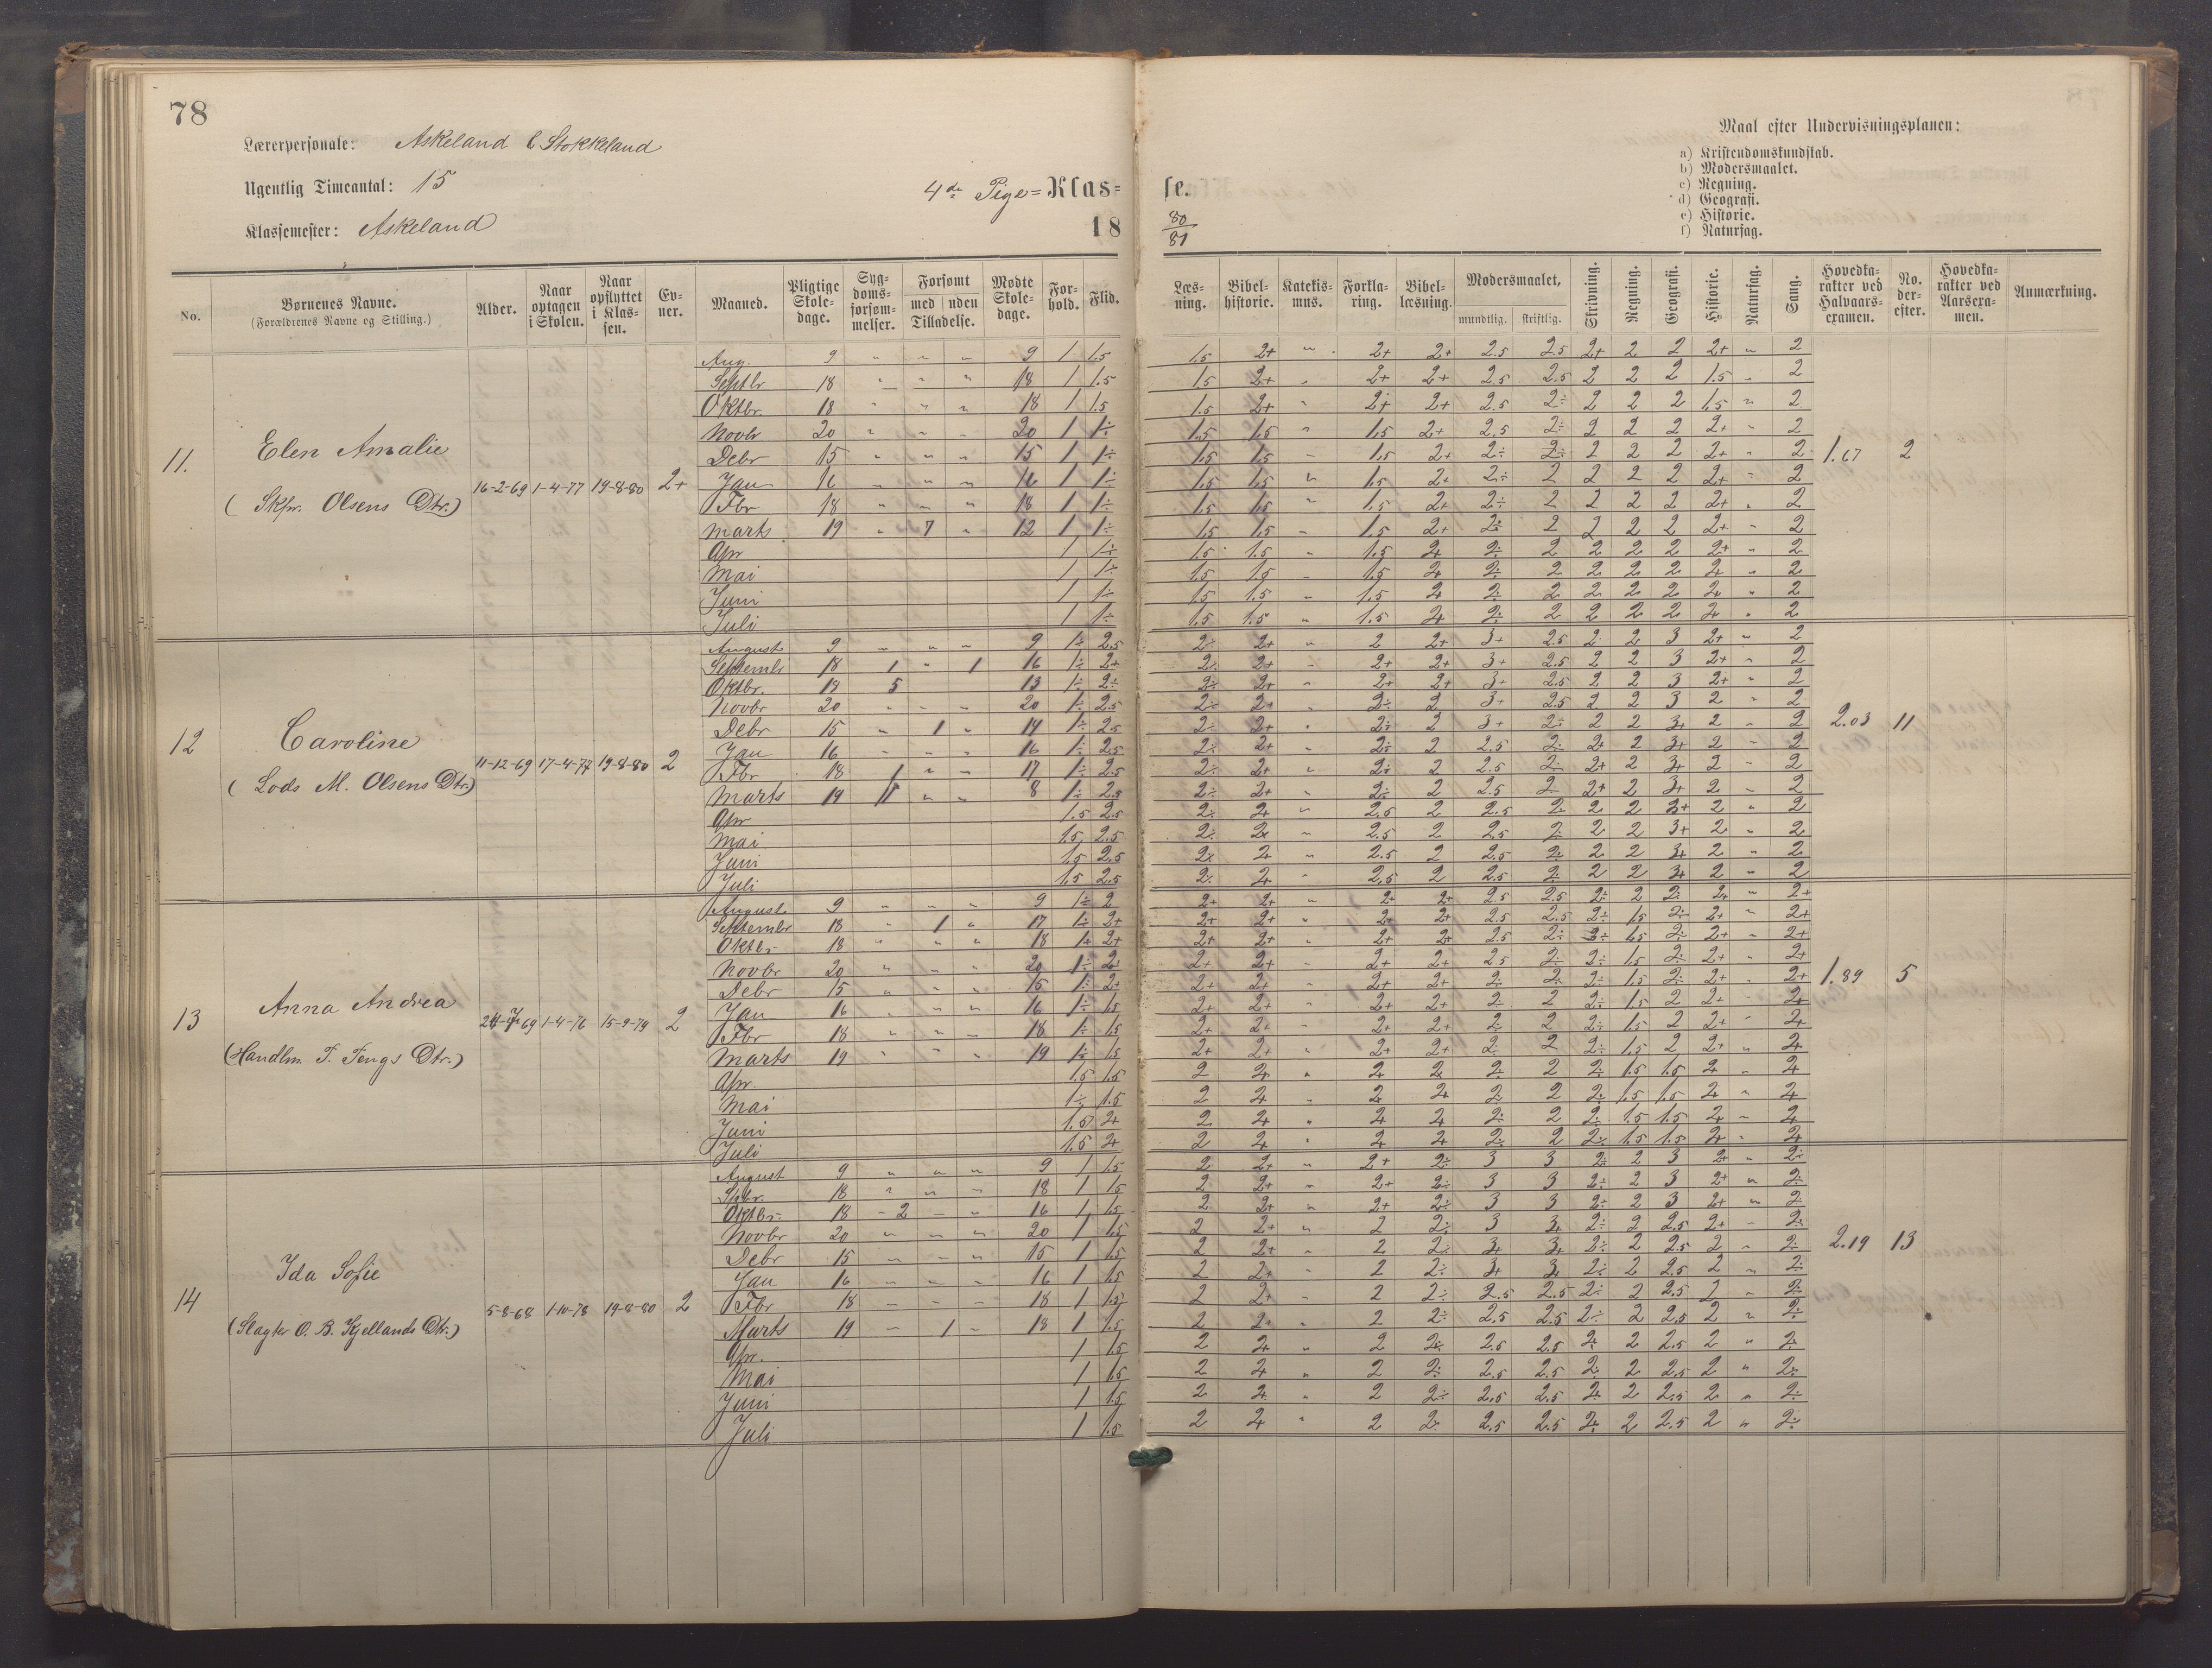 78
Lærerpersonale: Askeland & Stokkeland
Ugentlig Timeantal: 15
Klassemester: Askeland
4de Pige=Klas=
18
se.
80
81
Maal efter Undervisningsplanen:
a) Kristendomskundskab.
b) Modersmaalet.
c) Regning.
d) Geografi.
e) Historie.
f) Naturfag.
No. | Børnenes Navne. (Forældrenes Navne og Stilling.) | Alder. | Naar optagen i Skolen. | Naar opflyttet i Klassen. | Evner. | Maaned. | Pligtige Skoledage. | Sygdomsforsømmelser. | Forsømt med uden Tilladelse. | Mødte Skoledage. | Forhold. | Flid. | Læsning. | Bibelhistorie. | Katekismus. | Forklaring. | Bibellæsning. | Modersmaalet, mundtlig. skriftlig. | Skrivning. | Regning. | Geografi. | Historie. | Naturfag. | Sang. | Hovedkarakter ved Halvaarsexamen. | No. derefter. | Hovedkarakter ved Aarsexamen. | Anmærkning.
11. Elen Amalie
(Skpr. Olsens Dtr.) 16-2-69 1-4-77 19-8-80 2+
Aug. 9 " " " 9 1 1.5 1.5 2+ " 2+ 2+ 2.5 2.5 2+ 2 2 2+ " 2
Septbr 18 " " " 18 1 1.5 1.5 2+ " 2+ 2+ 2.5 2.5 2 2 2 1.5 " 2
Oktbr. 18 " " " 18 1 1.5 1.5 2+ " 2+ 2+ 2.5 2÷ 2 2 2 1.5 " 2
Novbr 20 " " " 20 1 1÷ 1.5 1.5 " 1.5 2+ 2.5 2÷ 2 2 2 2+ " 2
Debr 15 " " " 15 1 1÷ 1.5 1.5 " 1.5 2+ 2÷ 2÷ 2 2 2 2+ " 2 1.67 2
Jan 16 " " " 16 1 1÷ 1.5 1.5 " 1.5 2+ 2÷ 2 2 2 2 2+ " 2
Fbr 18 " " " 18 1 1÷ 1.5 1.5 " 1.5 2+ 2÷ 2 2 2 2 2+ " 2
Marts 19 " 7 " 12 1 1÷ 1.5 1.5 " 1.5 2+ 2÷ 2 2 2 2 2+ " 2
Apr 1 1÷ 1.5 1.5 " 1.5 2+ 2÷ 2 2 2 2 2+ " 2
Mai 1 1÷ 1.5 1.5 " 1.5 2+ 2÷ 2 2 2 2 2+ " 2
Juni 1 1÷ 1.5 1.5 " 1.5 2+ 2÷ 2 2 2 2 2+ " 2
Juli 1 1÷ 1.5 1.5 " 1.5 2+ 2÷ 2 2 2 2 2+ " 2
12 Caroline
(Lods M. Olsens Dtr.) 11-12-69 17-4-77 19-8-80 2
August 9 " " " 9 1÷ 2.5 2÷ 2+ " 2 2+ 3+ 2.5 2 2 3 2+ " 2
Septembr 18 1 " 1 16 1÷ 2+ 2÷ 2+ " 2+ 2+ 3+ 2.5 2 2 3 2+ " 2
Oktbr. 18 5 13 1÷ 2÷ 2÷ 2+ " 2+ 2+ 3+ 2.5 2 2 3 2+ " 2
Novbr 20 " " " 20 1÷ 2.5 2÷ 2+ " 2÷ 2 3+ 2.5 2 2 3 2 " 2
Debr 15 " 1 " 14 1÷ 2.5 2÷ 2+ " 2÷ 2 3+ 2÷ 2 2 3+ 2 " 2 2.03 11
Jan 16 " " " 16 1÷ 2.5 2÷ 2+ " 2÷ 2 2.5 2÷ 2+ 2 3+ 2 " 2
Fbr 18 1 " " 17 1÷ 2.5 2÷ 2+ " 2÷ 2 2.5 2÷ 2+ 2 3+ 2 " 2
Marts 19 11 " " 8 1÷ 2.5 2÷ 2+ " 2÷ 2 2.5 2÷ 2+ 2 3+ 2 " 2
Apr 1.5 2.5 2÷ 2+ " 2.5 2 2.5 2÷ 2 2 3+ 2 " 2
Mai 1.5 2.5 2÷ 2+ " 2.5 2 2.5 2÷ 2 2 3+ 2 " 2
Juni 1.5 2.5 2÷ 2+ " 2.5 2 2.5 2÷ 2 2 3+ 2 " 2
Juli 1.5 2.5 2÷ 2+ " 2.5 2 2.5 2÷ 2 2 3+ 2 " 2
13 Anna Andrea
(Handlm. T. Tengs Dtr.) 69 1-4-76 15-9-79 2
August 9 " " " 9 1÷ 2 2+ 2+ " 2+ 2+ 2.5 2.5 2÷ 2 2÷ 2+ " 2+
Septembr 18 " 1 " 17 1÷ 2+ 2+ 2+ " 2+ 2+ 2.5 2.5 2÷ 1.5 2÷ 2+ " 2+
Oktbr 18 " " " 18 1+ 2+ 2+ 2+ " 2+ 2+ 2.5 2÷ 2÷ 1.5 2÷ 2+ " 2+
Novbr 20 " " " 20 1÷ 2+ 2+ 2+ " 2+ 2+ 2.5 2÷ 2÷ 1.5 2÷ 2+ " 2+
Debr 15 " " " 15 1÷ 2+ 2+ 2+ " 2+ 2+ 2÷ 2÷ 2÷ 1.5 2÷ 2+ " 2+ 1.89 5
Jan 16 " " " 16 1÷ 1.5 2+ 2+ " 2+ 2+ 2÷ 2 2÷ 1.5 2 2+ " 2+
Fbr 18 " " " 18 1÷ 1.5 2+ 2+ " 2+ 2+ 2÷ 2 2÷ 1.5 2 2+ " 2+
Marts 19 " " " 19 1÷ 1.5 2+ 2+ " 2+ 2+ 2÷ 2 2÷ 1.5 2 2+ " 2+
Apr. 1.5 1.5 2 2+ " 2+ 2+ 2÷ 2 2÷ 1.5 1.5 2+ " 2+
Mai 1÷ 1.5 2 2+ " 2+ 2+ 2÷ 2 2÷ 1.5 1.5 2+ " 2+
Juni 1.5 2+ 2 2+ " 2+ 2+ 2÷ 2 2÷ 1.5 1.5 2+ " 2+
Juli 1.5 2+ 2 2+ " 2+ 2+ 2÷ 2 2÷ 1.5 1.5 2+ " 2+
14 Ida Sofie
(Slagter O. B. Kjellands Dtr.) 5-8-68 1-10-78 19-8-80 2
August 9 " " " 9 1 1.5 2 2+ " 2+ 2÷ 3 3 2÷ 2 3 2+ " 2÷
Sptbr. 18 " " " 18 1 1.5 2 2+ " 2+ 2÷ 3 3 2÷ 2 3 2+ " 2÷
Oktbr. 18 " 2 " " 16 1 1.5 2 2+ " 2+ 2÷ 3 3 2÷ 2 3 2+ " 2÷
Novbr 20 " " " 20 1 1.5 2 2+ " 2 2÷ 3 3+ 2÷ 2 2.5 2+ " 2÷
Debr 15 " " " 15 1 1.5 2 2+ " 2 2÷ 3+ 3+ 2÷ 2 2.5 2 " 2÷ 2.19 13
Jan 16 " " " 16 1 1.5 2 2+ " 2 2÷ 3+ 3+ 2÷ 2 2.5 2 " 2÷
Fbr 18 " " " 18 1 1.5 2 2+ " 2 2÷ 2.5 2.5 2÷ 2 2.5 2 " 2÷
Marts 19 " 1 " 18 1 1.5 2 2+ " 2 2÷ 2.5 2.5 2÷ 2 2.5 2 " 2÷
Apr. 1 1.5 2 2+ " 2 2÷ 2.5 2.5 2÷ 2 2.5 2 " 2÷
Mai 1 1.5 2 2+ " 2 2÷ 2.5 2.5 2÷ 2 2.5 2 " 2÷
Juni 1 1.5 2 2+ " 2 2÷ 2.5 2.5 2÷ 2 2.5 2 " 2÷
Juli 1 1.5 2 2+ " 2 2÷ 2.5 2.5 2÷ 2 2.5 2 " 2÷